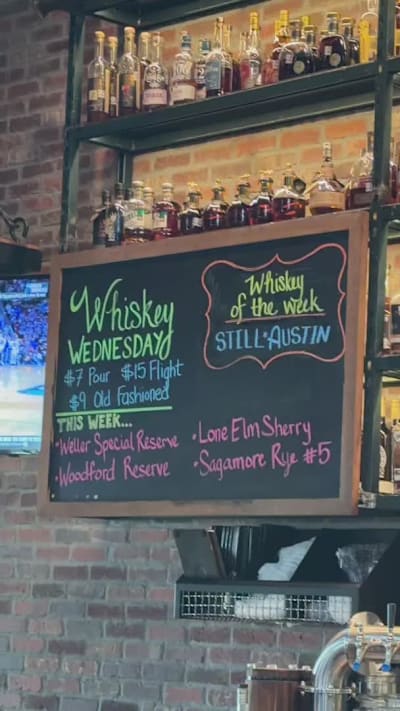 Whiskey
WEDNESDAY
$7 Pour $15 Flight
$9 Old Fashioned
THIS WEEK...
•Weller Special Reserve
•Woodford Reserve
•Lone Elm Sherry
•Sagamore Rye #5
Whiskey
of the week
STILL*AUSTIN